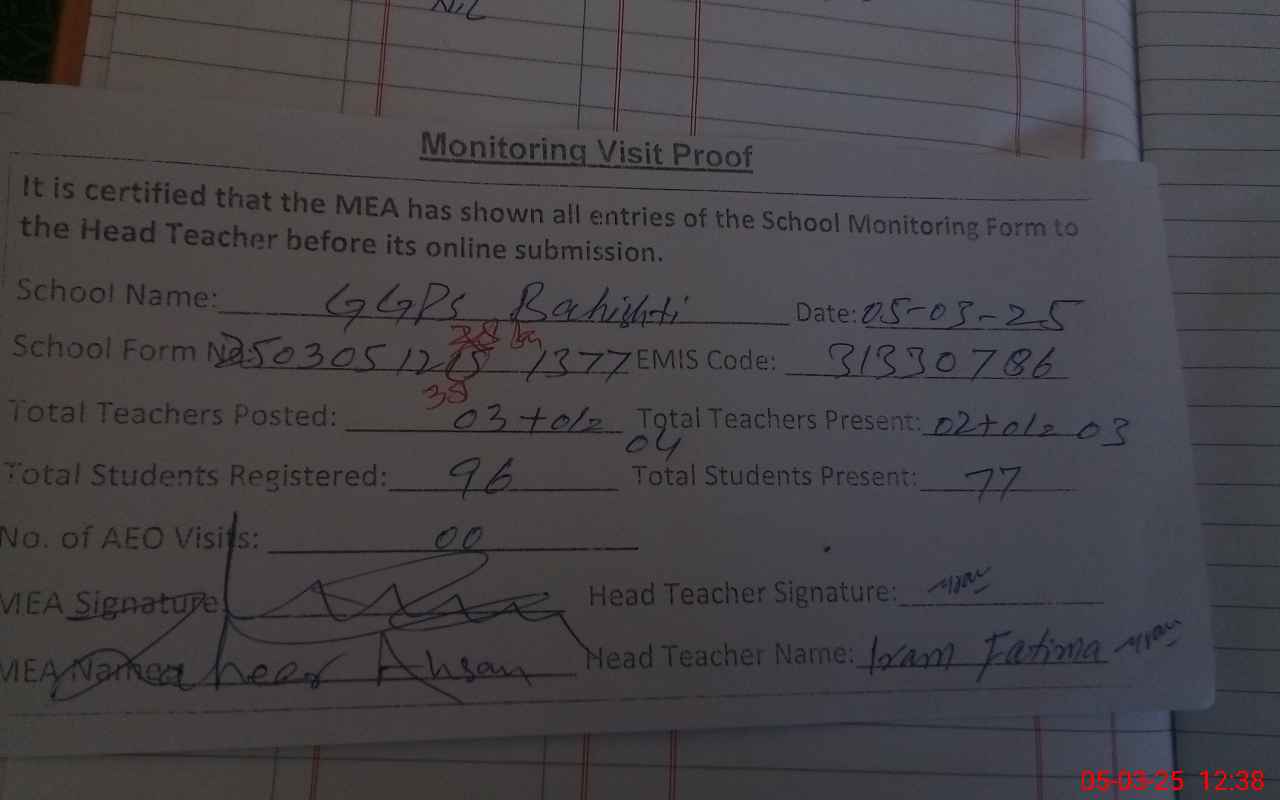 Nil
Monitoring Visit Proof
It is certified that the MEA has shown all entries of the School Monitoring Form to
the Head Teacher before its online submission.
School Name: GGPS Bahishti Date: 05-03-25
School Form 1377 EMIS Code: 31330786
38
Total Teachers Posted: 03+01= 04 Total Teachers Present: 02+01= 03
Total Students Registered: 96 Total Students Present: 77
No. of AEO Visits: 00
MEA Signature: Head Teacher Signature:
MEA Name: Ahsan Head Teacher Name: Iram Fatima
05-03-25 12:38